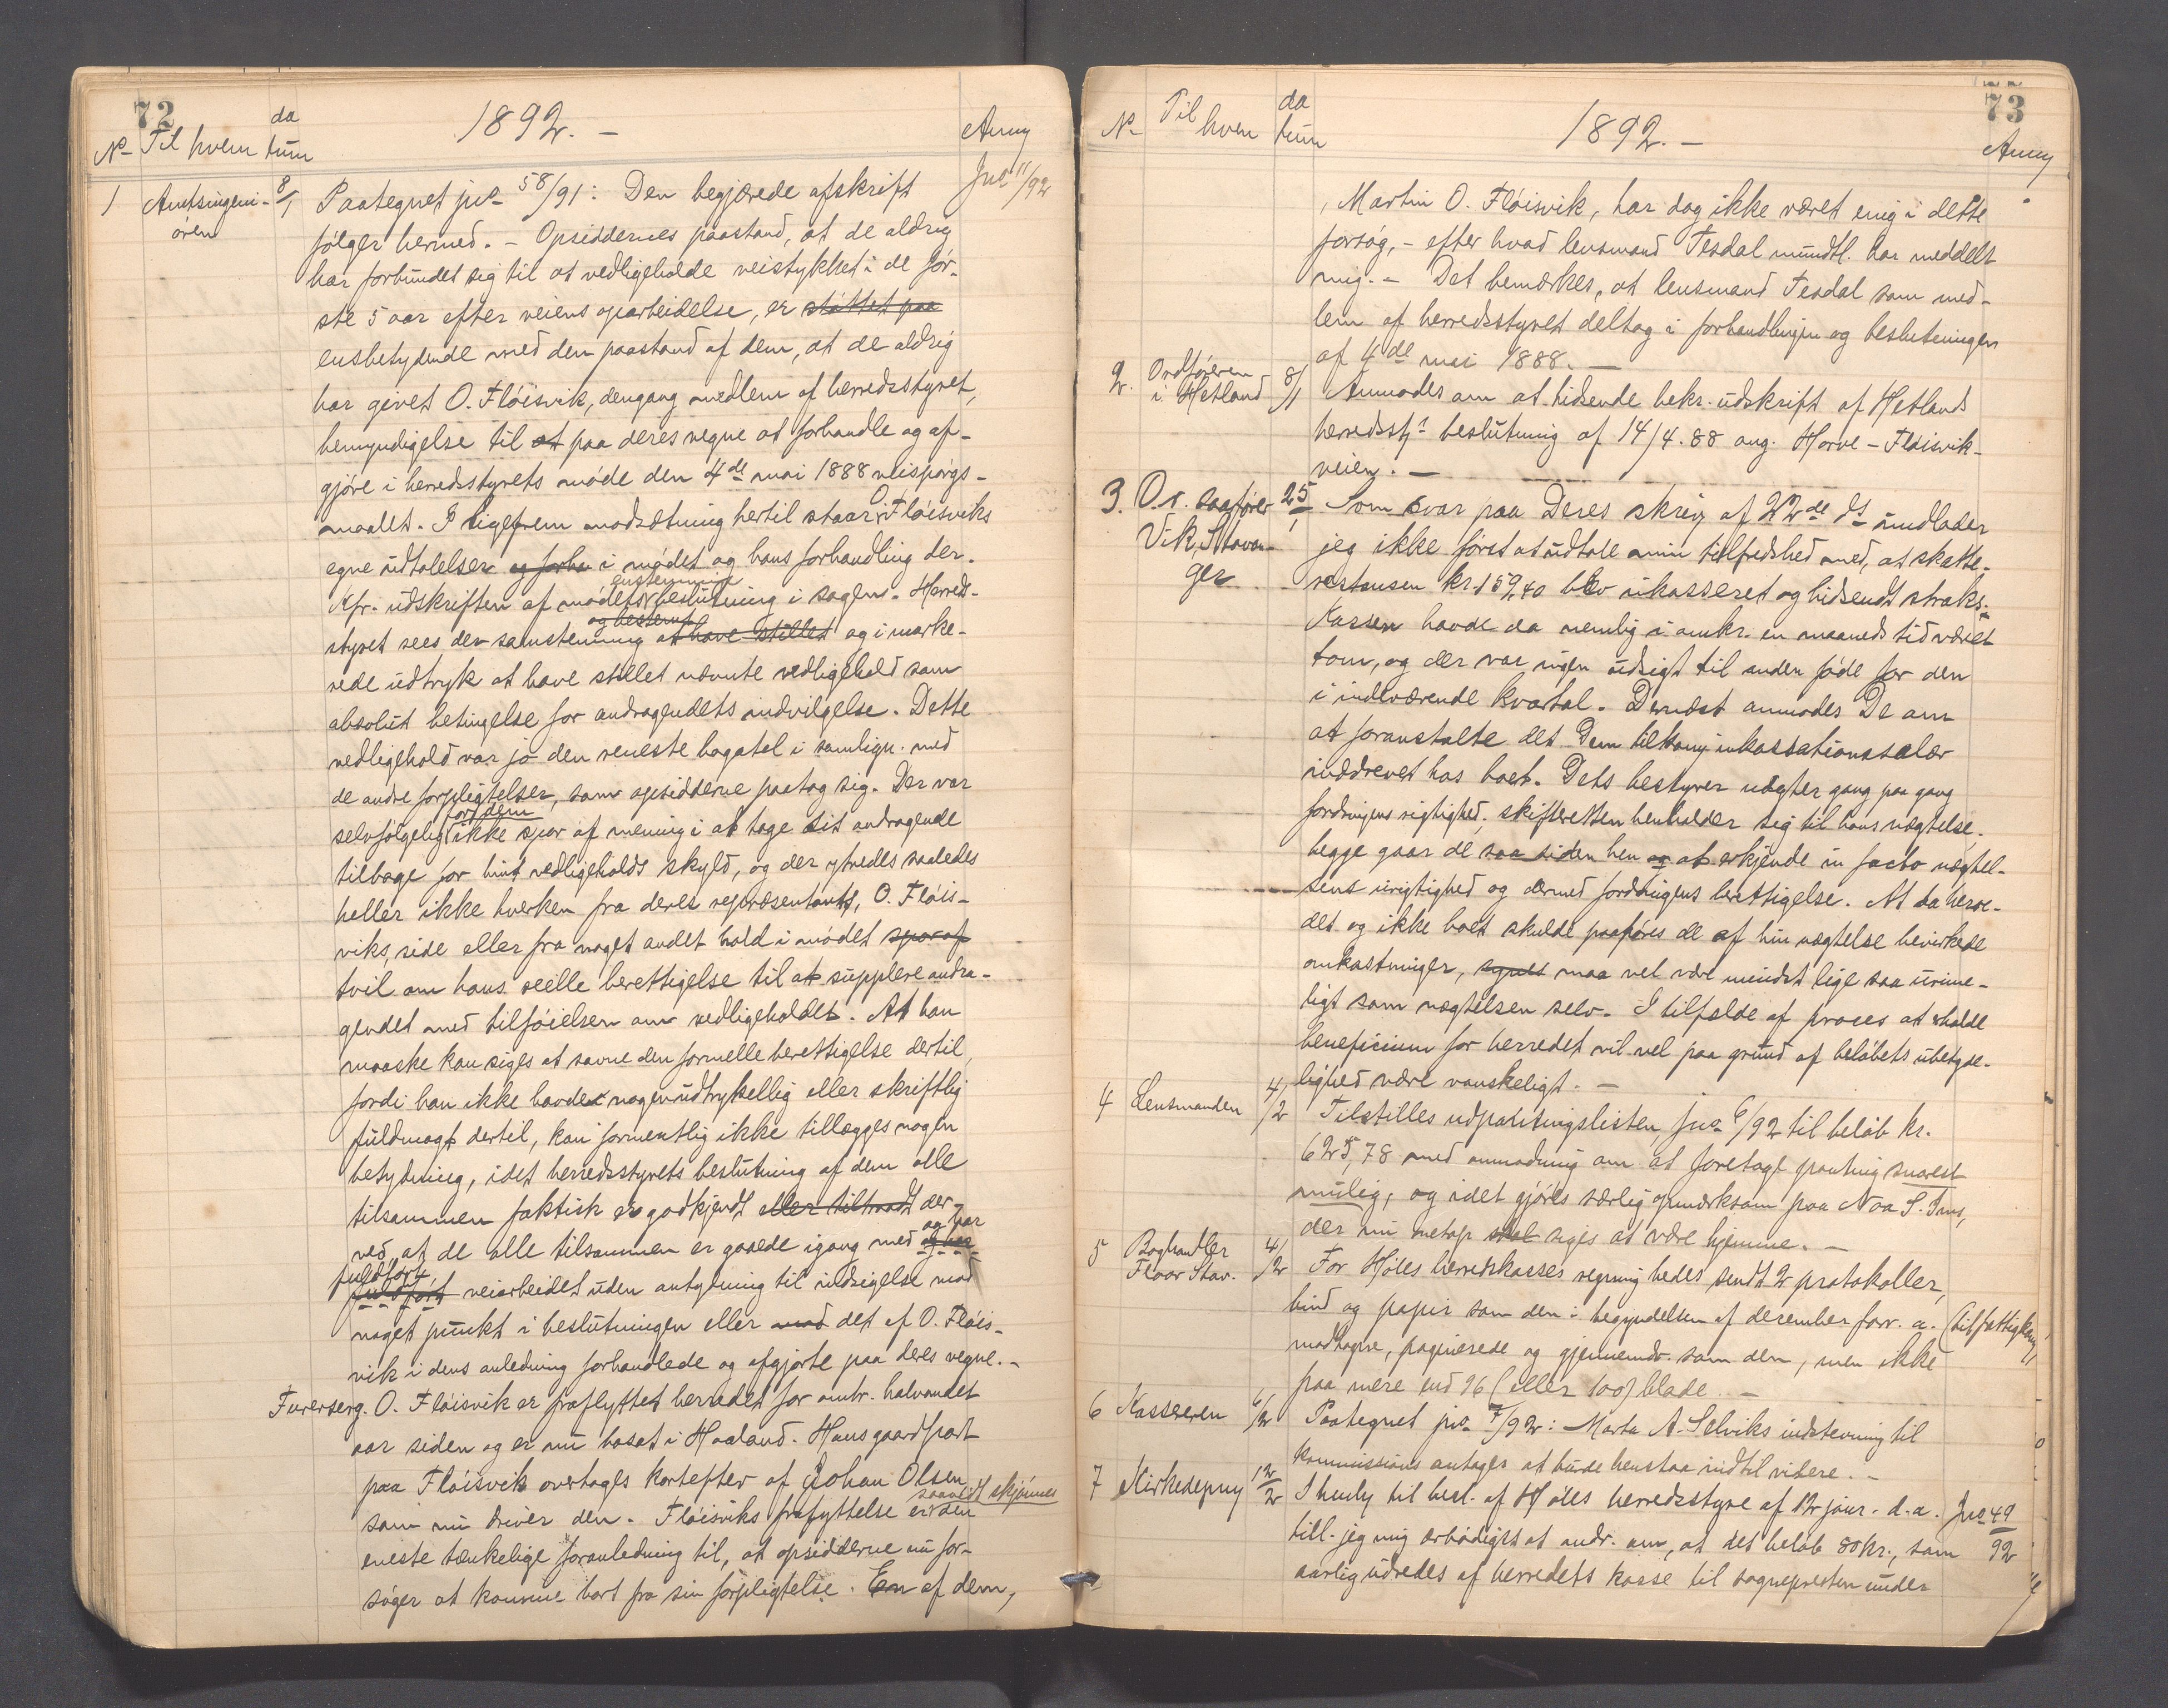 72
1892. –
No Til hvem da tum Anm
1 Amtsingeni- øren 8/1 Paategnet jno 58/91: Den begjærede afskrift Jno 11/92
følger hermed. – Opsiddernes paastand, at de aldrig
har forbundet sig til at vedligeholde veistykket i de før-
ste 5 aar efter veiens oparbeidelse, er støttet paa
ensbetydende med den paastand af dem, at de aldrig
har givet O. Fløisvik, dengang medlem af herredsstyret,
bemyndigelse til at paa deres vegne at forhandle og af-
gjøre i herredsstyrets møde den 4de mai 1888 veispørgs-
maalet. I ligefrem modsætning hertil staar O. Fløisviks
egne udtalelser og forha i mødet og hans forhandling der.
Kfr. udskriften af mødets enstemmige beslutning i sagen. Herreds-
styret sees der samstemmig og bestemt at have stillet og i marke-
rede udtryk at have stillet nævnte vedligehold som
absolut betingelse for andragendets indvilgelse. Dette
vedligehold var jo den reneste bagatel i samlign. med
de andre forpligtelser, som opsidderne paatog sig. Der var
selvfølgelig for dem ikke spor af mening i at tage sit andragende
tilbage for hint vedligeholds skyld, og der ytredes saaledes
heller ikke hverken fra deres repræsentants, O. Fløis-
viks, side eller fra noget andet hold i mødet spor af
tvil om hans reelle berettigelse til at supplere andra-
gendet med tilføielsen om vedligeholdet. At han
maaske kan siges at savne den formelle berettigelse dertil,
fordi han ikke havde nogen udtrykkellig eller skriftlig
fuldmagt dertil, kan formentlig ikke tillægges nogen
betydning, idet herredsstyrets beslutning af dem alle
tilsammen faktisk er godkjendt eller tiltraadt der-
ved, at de alle tilsammen er gaaede igang med og har og har
fuldført fuldført veiarbeidet uden antydning til indsigelse mod
noget punkt i beslutningen eller mod det af O. Fløis-
vik i dens anledning forhandlede og afgjorte paa deres vegne. –
Forresten. O. Fløisvik er fraflyttet herredet for omtr. halvandet
aar siden og er nu bosat i Haaland. Hans gaardpart
paa Fløisvik overtages kortefter af Johan Olsen
som nu driver den. Fløisviks fraflyttelse er saavidt skjønnes den
eneste tænkelige foranledning til, at opsidderne nu for-
søger at komme bort fra sin forpligtelse. En af dem,
73
1892. –
No Til hvem da tum Anm
Martin O. Fløisvik, har dog ikke været enig i dette
forsøg, – efter hvad lensmand Tesdal mundtl. har meddelt
mig. – Det bemærkes, at lensmand Tesdal som med-
lem af herredsstyret deltog i forhandlingen og beslutningen
af 4de mai 1888. –
2. Ordføreren i Hetland 8/1 Anmodes om at hidsende bekr. udskrift af Hetlands
herredsst. beslutning af 14/4. 88 ang. Horve – Fløisvik-
veien. –
3. O.r. sagfører Vik, Stavan- ger 25/1 Som svar paa Deres skriv. af 22de ds undlader
jeg ikke først at udtale min tilfredshed med, at skatte-
restansen kr. 159,40 blev inkasseret og hidsendt straks.
Kassen havde da nemlig i omkr. en maaneds tid været
tom, og der var ingen udsigt til anden føde for den
i indeværende kvartal. Dernæst anmodes De om
at foranstalte det Dem tilkom. inkassationssalær
inddrevet hos boet. Dets bestyrer nægter gang paa gang
fordringens rigtighed; skifteretten henholder sig til hans nægtelse.
begge gaar de saa siden hen og at erkjende in facto nægtel-
sens urigtighed og dermed fordringens berettigelse. At da herre-
det og ikke boet skulde paaføres de af hin nægtelse bevirkede
omkostninger, synes maa vel være mindst lige saa urime-
ligt som nægtelsen selv. I tilfælde af proces at erholde
beneficium for herredet vil vel paa grund af beløbets ubetyde-
lighed være vanskeligt. –
4 Lensmanden 4/2 Tilstilles udpantningslisten jno 6/92 til beløb kr.
625,78 med anmodning om at foretage pantning snarest
mulig, og idet gjøres særlig opmærksom paa Noa S. Ims,
der nu netop skal siges at være hjemme. –
5 Boghandler Floor Stav. 4/2 For Høles herredskasses regning bedes sendt 2 protokoller,
bind og papir som den i begyndelsen af desember forr. a. (til fattigkom.)
modtagne, paginerede og gjennemdr. som den, men ikke
paa mere end 96 (eller 100) blade. –
6 Kassereren 6/2 Paategnet jno 7/92: Marta A. Selviks indstevning til
kommissions antages at burde henstaa indtil videre. –
7 Kirkedepny 12/2 I henh. til besl. af Høles herredsstyre af 12 janr. d. a. Jno 49/92
till. jeg mig ærbødigst at andr. om, at det beløb 80 kr., som
aarlig udredes af herredets kasse til sognepresten under